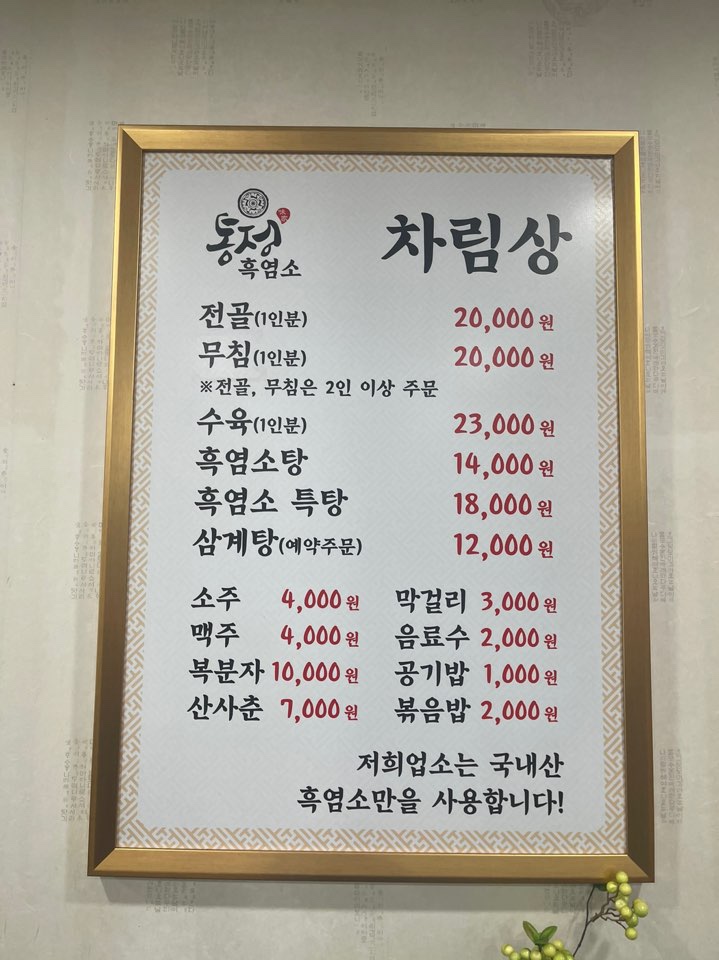 동정
흑염소
차림상
전골(1인분) 20,000원
무침(1인분) 20,000원
※전골, 무침은 2인 이상 주문
수육(1인분) 23,000원
흑염소탕 14,000원
흑염소 특탕 18,000원
삼계탕(예약주문) 12,000원
소주 4,000원 막걸리 3,000원
맥주 4,000원 음료수 2,000원
복분자 10,000원 공기밥 1,000원
산사춘 7,000원 볶음밥 2,000원
저희업소는 국내산
흑염소만을 사용합니다!